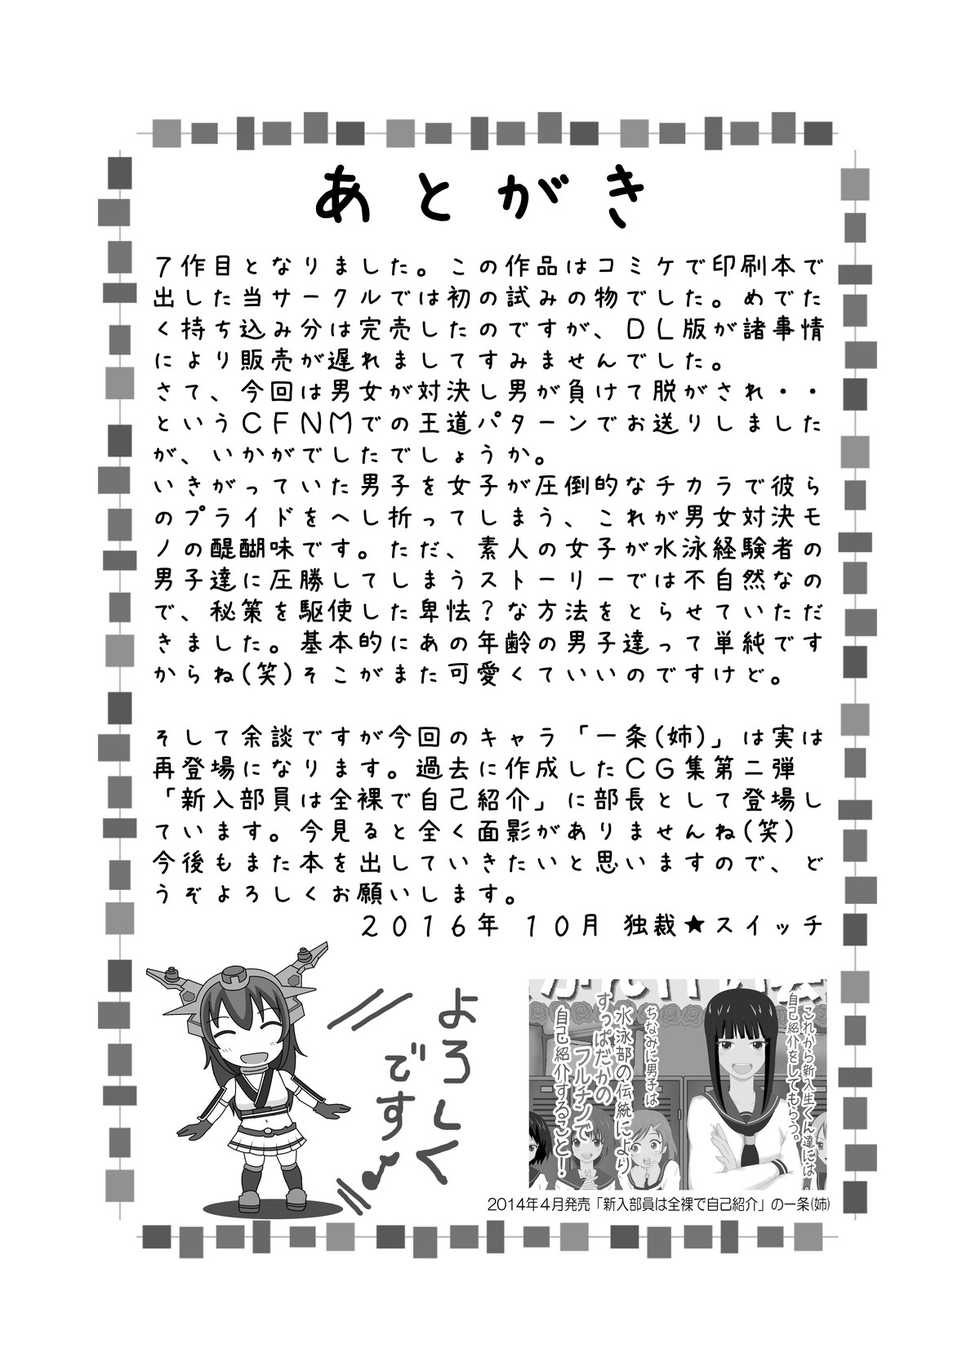 あとがき
７作目となりました。この作品はコミケで印刷本で
出した当サークルでは初の試みの物でした。めでた
く持ち込み分は完売したのですが、ＤＬ版が諸事情
により販売が遅れましてすみませんでした。
さて、今回は男女が対決し男が負けて脱がされ・・
というＣＦＮＭでの王道パターンでお送りしました
が、いかがでしたでしょうか。
いきがっていた男子を女子が圧倒的なチカラで彼ら
のプライドをへし折ってしまう、これが男女対決モ
ノの醍醐味です。ただ、素人の女子が水泳経験者の
男子達に圧勝してしまうストーリーでは不自然なの
で、秘策を駆使した卑怯？な方法をとらせていただ
きました。基本的にあの年齢の男子達って単純です
からね(笑)そこがまた可愛くていいのですけど。
そして余談ですが今回のキャラ「一条(姉)」は実は
再登場になります。過去に作成したＣＧ集第二弾
「新入部員は全裸で自己紹介」に部長として登場し
ています。今見ると全く面影がありませんね(笑)
今後もまた本を出していきたいと思いますので、ど
うぞよろしくお願いします。
２０１６年 １０月 独裁★スイッチ
よろしく
です
これから新入生くん達には
自己紹介をしてもらう。
ちなみに男子は
水泳部の伝統により
すっぱだかの
フルチンで
自己紹介すること！
2014年４月発売「新入部員は全裸で自己紹介」の一条(姉)